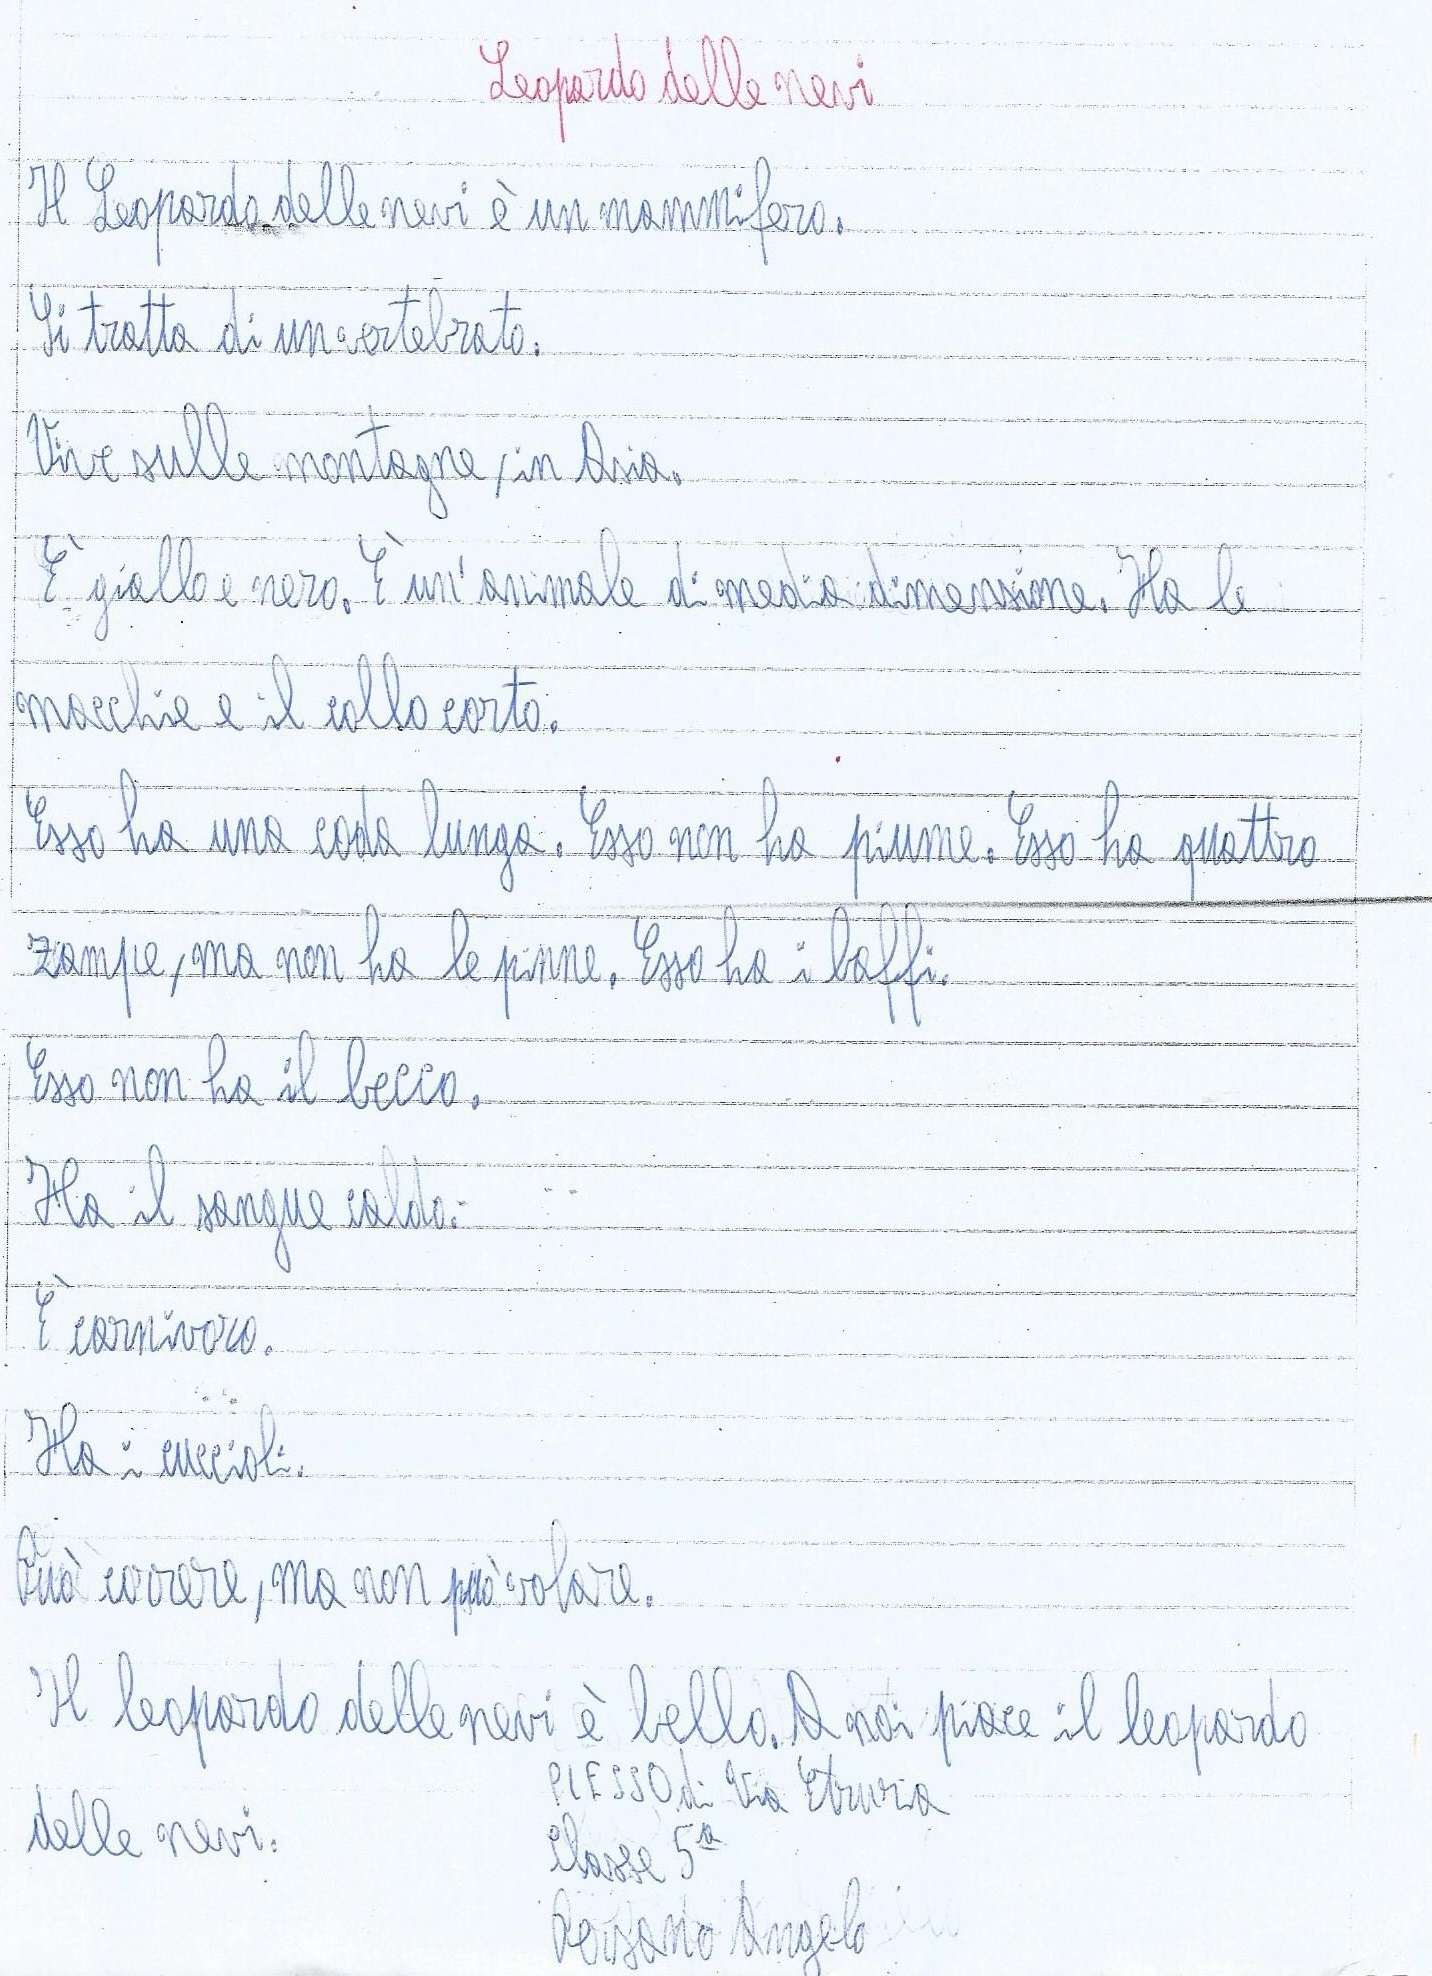 Leopardo delle nevi
Il Leopardo delle nevi è un mammifero.
Si tratta di un vertebrato.
Vive sulle montagne, in Asia.
È giallo e nero. È un' animale di media dimensione. Ha le
macchie e il collo corto.
Esso ha una coda lunga. Esso non ha piume. Esso ha quattro
zampe, ma non ha le pinne. Esso ha i baffi.
Esso non ha il becco.
Ha il sangue caldo.
È carnivoro.
Ha i cuccioli.
Può correre, ma non può volare.
Il leopardo delle nevi è bello. A noi piace il leopardo
delle nevi.
PLESSO di Via Etruria
Classe 5ª
Persano Angelo